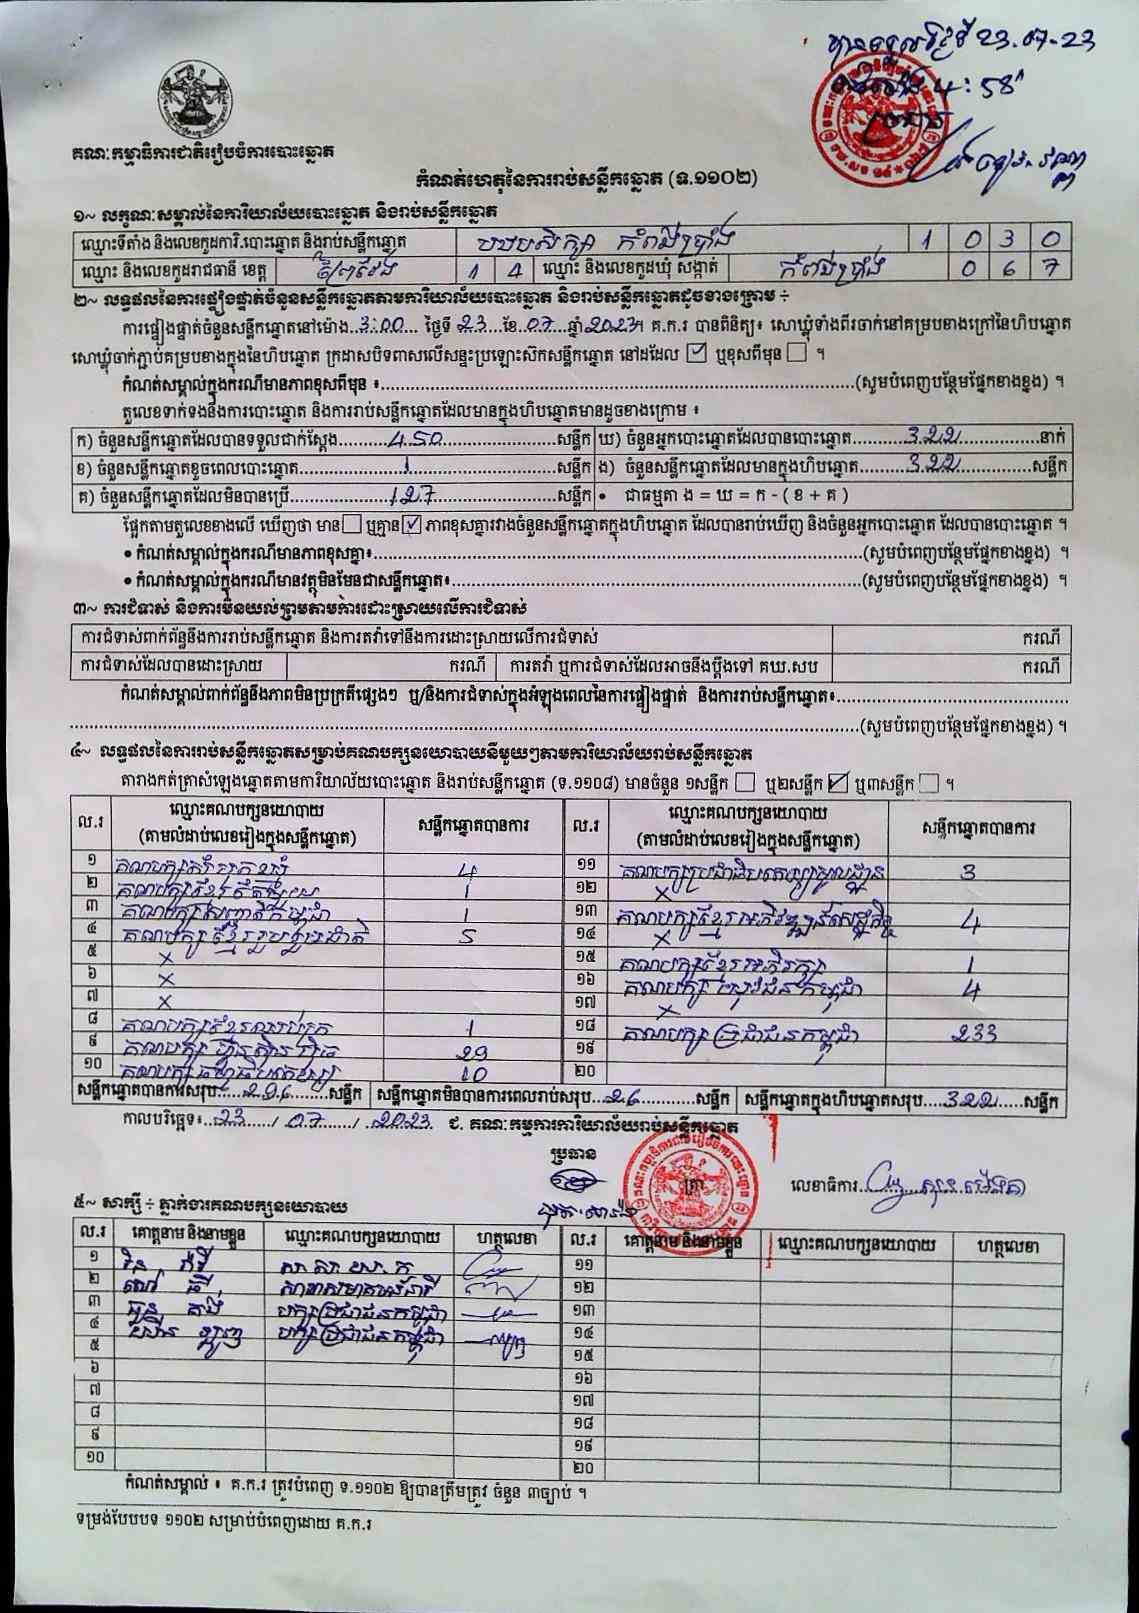 បានទទួលថ្ងៃទី 23.07-23
ម៉ោង 4:58'
គណៈកម្មាធិការជាតិរៀបចំការបោះឆ្នោត
កំណត់ហេតុនៃការរាប់សន្លឹកឆ្នោត (ទ.១១០២)
១~ លក្ខណៈសម្គាល់នៃការិយាល័យបោះឆ្នោត និងរាប់សន្លឹកឆ្នោត
ឈ្មោះទីតាំង និងលេខកូដការិ.បោះឆ្នោត និងរាប់សន្លឹកឆ្នោត បឋមសិក្សា កំពង់ប្រាំង 1 0 3 0
ឈ្មោះ និងលេខកូដរាជធានី ខេត្ត ព្រៃវែង 1 4 ឈ្មោះ និងលេខកូដឃុំ សង្កាត់ កំពង់ប្រាំង 0 6 7
២~ លទ្ធផលនៃការផ្ទៀងផ្ទាត់ចំនួនសន្លឹកឆ្នោតតាមការិយាល័យបោះឆ្នោត និងរាប់សន្លឹកឆ្នោតដូចខាងក្រោម ÷
ការផ្ទៀងផ្ទាត់ចំនួនសន្លឹកឆ្នោតនៅម៉ោង 3:00 ថ្ងៃទី 23 ខែ 07 ឆ្នាំ 2023។ គ.ក.រ បានពិនិត្យ៖ សោឃ្លុំទាំងពីរចាក់នៅគម្របខាងក្រៅនៃហិបឆ្នោត
សោឃ្លុំចាក់ភ្ជាប់គម្របខាងក្នុងនៃហិបឆ្នោត ក្រដាសបិទពាសលើសន្ទះប្រឡោះស៊កសន្លឹកឆ្នោត នៅដដែល ☑ ឬខុសពីមុន ☐ ។
កំណត់សម្គាល់ក្នុងករណីមានភាពខុសពីមុន ៖ (សូមបំពេញបន្ថែមផ្នែកខាងខ្នង) ។
តួលេខទាក់ទងនឹងការបោះឆ្នោត និងការរាប់សន្លឹកឆ្នោតដែលមានក្នុងហិបឆ្នោតមានដូចខាងក្រោម ៖
ក) ចំនួនសន្លឹកឆ្នោតដែលបានទទួលជាក់ស្តែង 450 សន្លឹក ឃ) ចំនួនអ្នកបោះឆ្នោតដែលបានបោះឆ្នោត 322 នាក់
ខ) ចំនួនសន្លឹកឆ្នោតខូចពេលបោះឆ្នោត 1 សន្លឹក ង) ចំនួនសន្លឹកឆ្នោតដែលមានក្នុងហិបឆ្នោត 322 សន្លឹក
គ) ចំនួនសន្លឹកឆ្នោតដែលមិនបានប្រើ 127 សន្លឹក • ជាធម្មតា ង = ឃ = ក - ( ខ + គ )
ផ្អែកតាមតួលេខខាងលើ ឃើញថា មាន ☐ ឬគ្មាន ☑ ភាពខុសគ្នារវាងចំនួនសន្លឹកឆ្នោតក្នុងហិបឆ្នោត ដែលបានរាប់ឃើញ និងចំនួនអ្នកបោះឆ្នោត ដែលបានបោះឆ្នោត ។
• កំណត់សម្គាល់ក្នុងករណីមានភាពខុសគ្នា៖ (សូមបំពេញបន្ថែមផ្នែកខាងខ្នង) ។
• កំណត់សម្គាល់ក្នុងករណីមានវត្ថុមិនមែនជាសន្លឹកឆ្នោត៖ (សូមបំពេញបន្ថែមផ្នែកខាងខ្នង) ។
៣~ ការជំទាស់ និងការមិនយល់ព្រមតាមការដោះស្រាយលើការជំទាស់
ការជំទាស់ពាក់ព័ន្ធនឹងការរាប់សន្លឹកឆ្នោត និងការតវ៉ាទៅនឹងការដោះស្រាយលើការជំទាស់ ករណី
ការជំទាស់ដែលបានដោះស្រាយ ករណី ការតវ៉ា ឬការជំទាស់ដែលអាចនឹងប្តឹងទៅ គឃ.សប ករណី
កំណត់សម្គាល់ពាក់ព័ន្ធនឹងភាពមិនប្រក្រតីផ្សេងៗ ឬ/និងការជំទាស់ក្នុងអំឡុងពេលនៃការផ្ទៀងផ្ទាត់ និងការរាប់សន្លឹកឆ្នោត៖
(សូមបំពេញបន្ថែមផ្នែកខាងខ្នង) ។
៤~ លទ្ធផលនៃការរាប់សន្លឹកឆ្នោតសម្រាប់គណបក្សនយោបាយនីមួយៗតាមការិយាល័យរាប់សន្លឹកឆ្នោត
តារាងកត់ត្រាសំឡេងឆ្នោតតាមការិយាល័យបោះឆ្នោត និងរាប់សន្លឹកឆ្នោត (ទ.១១០៨) មានចំនួន ១សន្លឹក ☐ ឬ២សន្លឹក ☑ ឬ៣សន្លឹក ☐ ។
ល.រ ឈ្មោះគណបក្សនយោបាយ (តាមលំដាប់លេខរៀងក្នុងសន្លឹកឆ្នោត) សន្លឹកឆ្នោតបានការ ល.រ ឈ្មោះគណបក្សនយោបាយ (តាមលំដាប់លេខរៀងក្នុងសន្លឹកឆ្នោត) សន្លឹកឆ្នោតបានការ
១ 4 ១១ គណបក្សប្រជាធិបតេយ្យមូលដ្ឋាន 3
២ 1 ១២ ×
៣ 1 ១៣ គណបក្សខ្មែរអភិវឌ្ឍន៍សេដ្ឋកិច្ច 4
៤ គណបក្សខ្មែររួបរួមជាតិ 5 ១៤ ×
៥ × ១៥ គណបក្សខ្មែរអភិរក្ស 1
៦ × ១៦ គណបក្ស យុវជនកម្ពុជា 4
៧ × ១៧ ×
៨ គណបក្សខ្មែរឈប់ក្រ 1 ១៨ គណបក្សប្រជាជនកម្ពុជា 233
៩ គណបក្ស ហ៊្វុនស៊ិនប៉ិច 29 ១៩
១០ 10 ២០
សន្លឹកឆ្នោតបានការសរុប 296 សន្លឹក សន្លឹកឆ្នោតមិនបានការពេលរាប់សរុប 26 សន្លឹក សន្លឹកឆ្នោតក្នុងហិបឆ្នោតសរុប 322 សន្លឹក
កាលបរិច្ឆេទ៖ 23 / 07 / 2023 ជ. គណៈកម្មការការិយាល័យរាប់សន្លឹកឆ្នោត
ប្រធាន
ត្រា
លេខាធិការ
៥~ សាក្សី ÷ ភ្នាក់ងារគណបក្សនយោបាយ
ល.រ គោត្តនាម និងនាមខ្លួន ឈ្មោះគណបក្សនយោបាយ ហត្ថលេខា ល.រ គោត្តនាម និងនាមខ្លួន ឈ្មោះគណបក្សនយោបាយ ហត្ថលេខា
១ ស ស យ ក ១១
២ ១២
៣ បក្សប្រជាជនកម្ពុជា ១៣
៤ បក្សប្រជាជនកម្ពុជា ១៤
៥ ១៥
៦ ១៦
៧ ១៧
៨ ១៨
៩ ១៩
១០ ២០
កំណត់សម្គាល់ ៖ គ.ក.រ ត្រូវបំពេញ ទ.១១០២ ឱ្យបានត្រឹមត្រូវ ចំនួន ៣ច្បាប់ ។
ទម្រង់បែបបទ ១១០២ សម្រាប់បំពេញដោយ គ.ក.រ